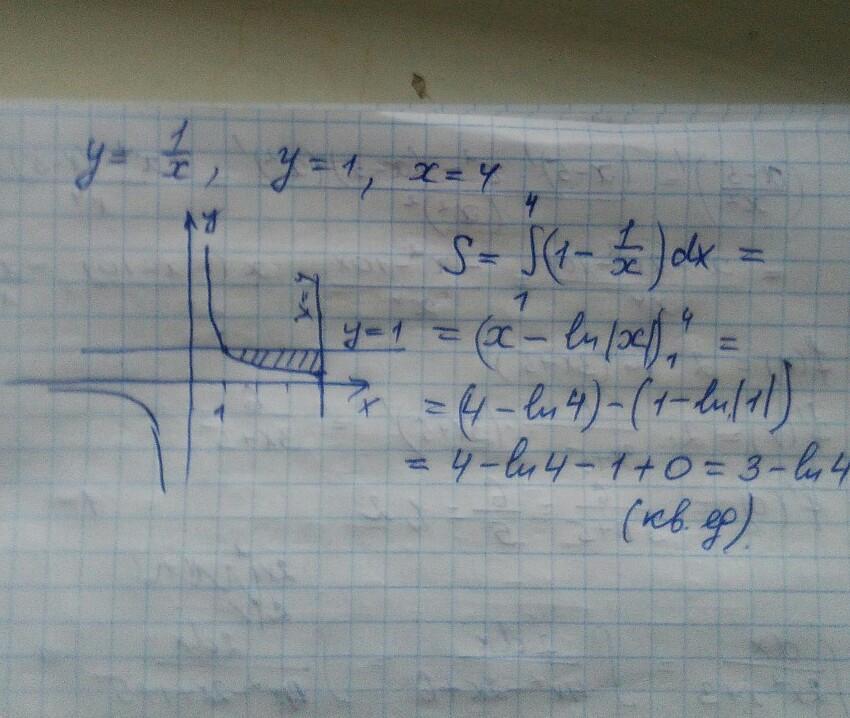 y = 1/x, y = 1, x = 4
y
x=4
y=1
1
x
S = ∫₁⁴ (1 - 1/x) dx =
= (x - ln|x|)₁⁴ =
= (4 - ln4) - (1 - ln|1|)
= 4 - ln4 - 1 + 0 = 3 - ln4
(кв. ед).